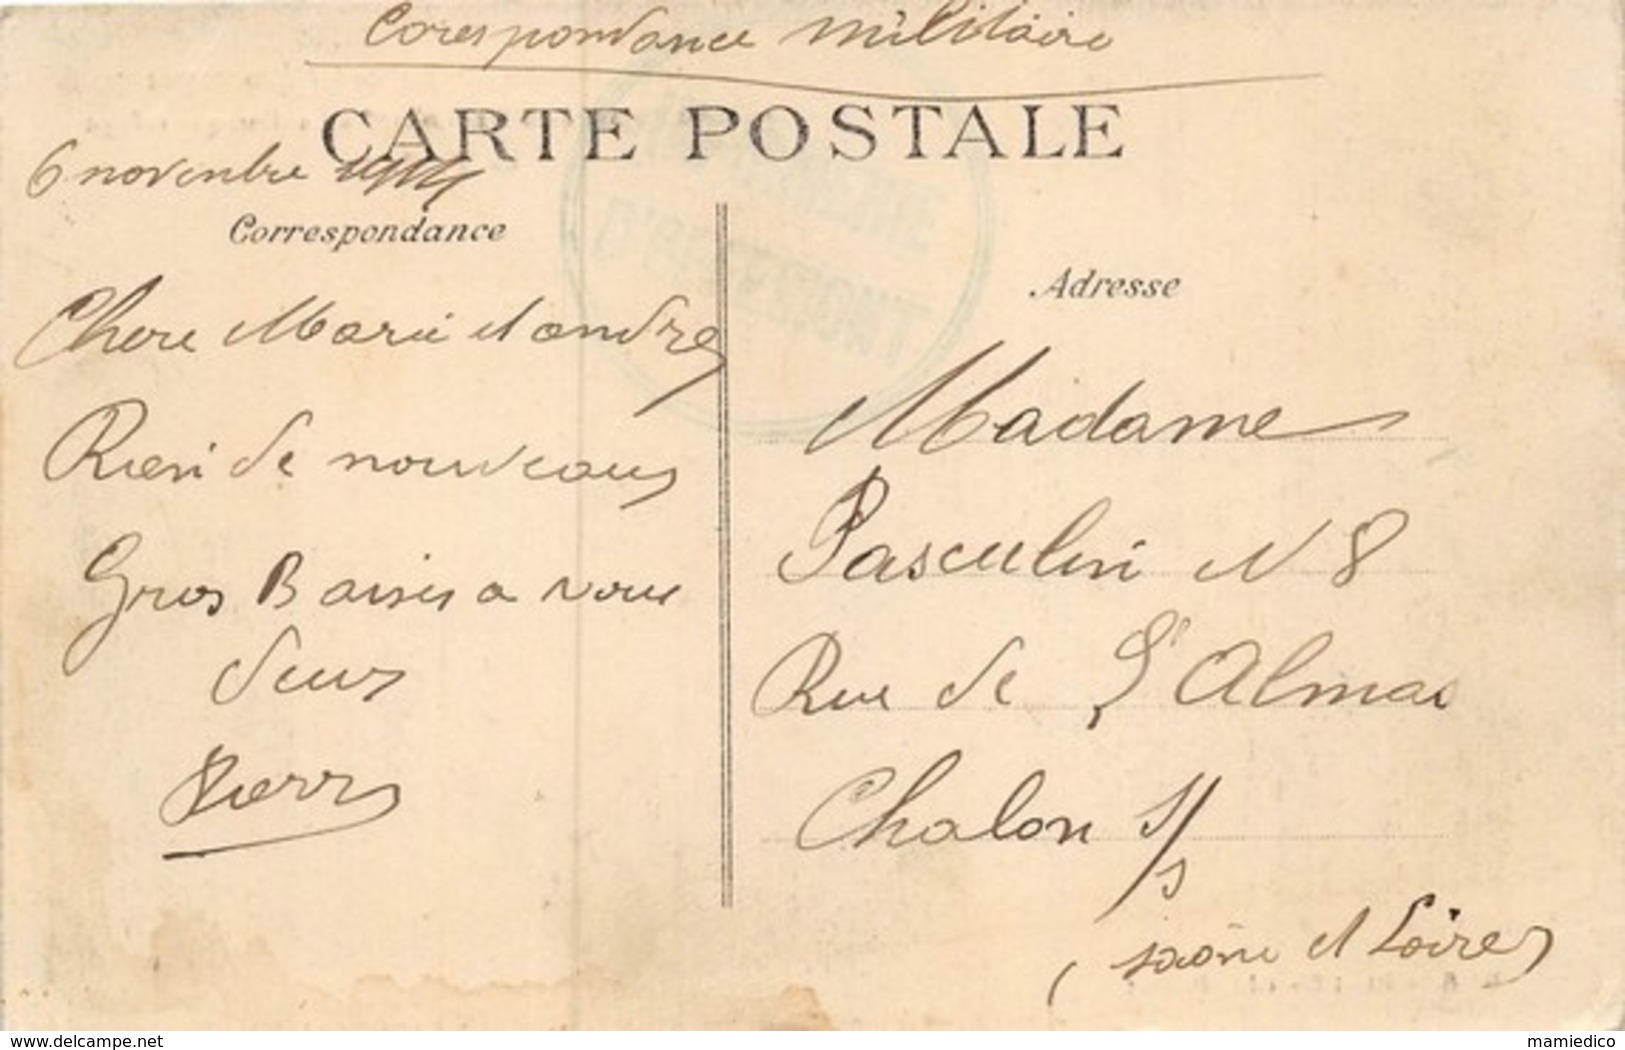 Corespondance militaire
CARTE POSTALE
6 novembre 1914
Correspondance
Chere Marie et andre
Rien de nouveaux
Gros Baises a vous
deux
Pierre
Adresse
Madame
Pasculin N 8
Rue de L'Almas
Chalon s/s
( saône et Loire )
delcampe.net
mamiedico